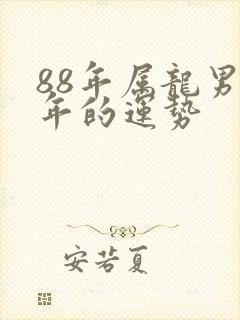 88年属龍男
年的運势
安若夏